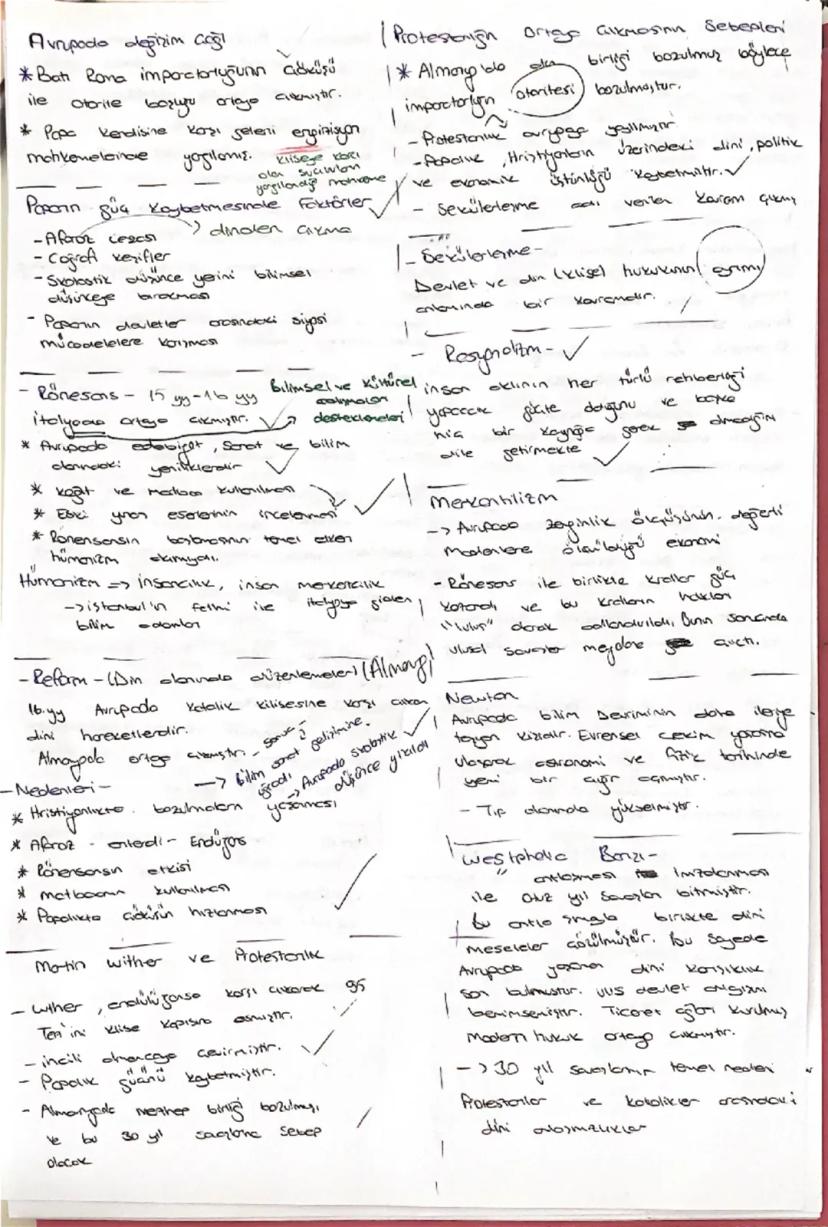 Avrupada değişim çağı
* Batı Roma imparatorluğunun çöküşü
ile otorite boşluğu ortaya çıkmıştır.
* Papa kendisine karşı geleni engizisyon
mahkemelerinde yargılamış.
kliseye karşı
olan suçluları
yargılandığı mahkeme
Papanın güç kaybetmesinde Faktörler
- Afaroz cezası
dinden çıkma
- Coğrafi keşifler
- Skolastik düşünce yerini bilimsel
düşünceye bırakması
- Papanın devletler arasındaki siyasi
mücadelelere karışması
- Rönesans - 15 yy - 16 yy
italyada ortaya çıkmıştır.
Bilimsel ve Kültürel
çalışmaları
desteklemeleri
* Avrupada edebiyat, sanat ve bilim
alanındaki yeniliklerdir
* kağıt ve matbaa kullanılması
* Eski yunan eserlerinin incelenmesi
* Rönensansın başlamasının temel etken
hümanizm akımıydı.
Hümanizm => insancılık, insan merkezcilik
-> istanbul'un fethi ile italyaya giden
bilim adamları
- Reform - (Din alanında düzenlemeler) (Almanya)
16.yy Avrupada Katolik Kilisesine karşı çıkan
dini hareketlerdir.
Almanyada ortaya çıkmıştır.
- sonuç -
-> bilim sanat gelişimine
uğradı
-> Avrupada skolastik
düşünce yıkıldı
- Nedenleri -
* Hristiyanlıkta bozulmaların yaşanması
* Afaroz - enterdi - Endüljans
* Rönensansın etkisi
* matbaanın kullanılması
* Papalıkta çöküşün hızlanması
Martin wither ve Protestanlık
- wither, endüljansa karşı çıkarak 95
Tez'ini klise kapısına asmıştır.
- incili almancaya çevirmiştir.
- Papalık gücünü kaybetmiştir.
- Almanyada mezhep birliği bozulmuş
ve bu 30 yıl savaşlarına sebep
olacak
Protestanlığın Ortaya çıkmasının Sebepleri
* Almanya'da din birliği bozulmuş böylece
imparatorluğun otoritesi bozulmuştur.
- Protestanlık avrupaya yayılmıştır.
- Papalık, Hristiyanların üzerindeki dini, politik
ve ekonomik üstünlüğü kaybetmiştir.
- Sekülerleşme adı verilen kavram çıkmış
- Sekülerleşme -
Devlet ve din (klise) hukukunun ayrımı
anlamında bir kavramdır.
- Rasyonalizm -
insan aklının her türlü rehberliği
yapacak güçte olduğunu ve başka
hiç bir kaynağa gerek olmadığını
dile getirmekte
Merkantilizm
-> Avrupada zenginlik ölçüsünün değerli
madenlere ölçüldüğü ekonomi
- Rönesans ile birlikte krallar güç
kazandı ve bu kralların halkları
"ulus" olarak adlandırıldı. Bunun sonucunda
ulusal savaşlar meydana çıktı.
Newton
Avrupada bilim Devriminin daha ileriye
taşıyan kişidir. Evrensel çekim yasasına
ulaşarak astronomi ve fizik tarihinde
yeni bir çığır açmıştır.
- Tıp alanında yükselmiştir.
Westphalia Barışı -
" antlaşması imzalanması
ile otuz yıl savaşları bitmiştir.
bu antlaşmayla birlikte dini
meseleler çözülmüştür. Bu sayede
Avrupada yaşanan dini karışıklık
son bulmuştur. ulus devlet anlayışını
benimsemiştir. Ticaret ağları kurulmuş
Modern hukuk ortaya çıkmıştır.
-> 30 yıl savaşlarının temel nedeni
Protestanlar ve katolikler arasındaki
dini anlaşmazlıklar